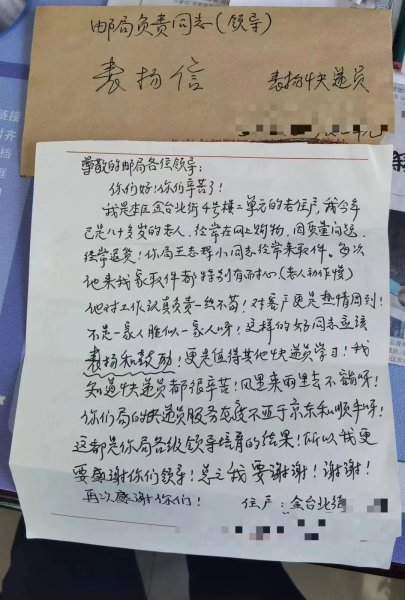 邮局负责同志(领导)
表扬信
表扬快递员
尊敬的邮局各位领导:
你们好!你们辛苦了!
我是本区金台北街4号楼二单元的老住户,我今年
已是八十多岁的老人,经常在网上购物,因质量问题,
经常退货!你局王志辉小同志经常来取件。每次
他来我家取件都特别有耐心(老人动作慢)
他对工作认真负责一丝不苟!对客户更是热情周到!
不是一家人胜似一家人呀!这样的好同志应该
表扬和鼓励!更是值得其他快递员学习!我
知道快递员都很辛苦!风里来雨里去不容易呀!
你们局的快递员服务态度不亚于京东和顺丰呀!
这都是你局各级领导培育的结果!所以我更
要感谢你们领导!总之我要谢谢!谢谢!
再次感谢你们!
住户:金台北街